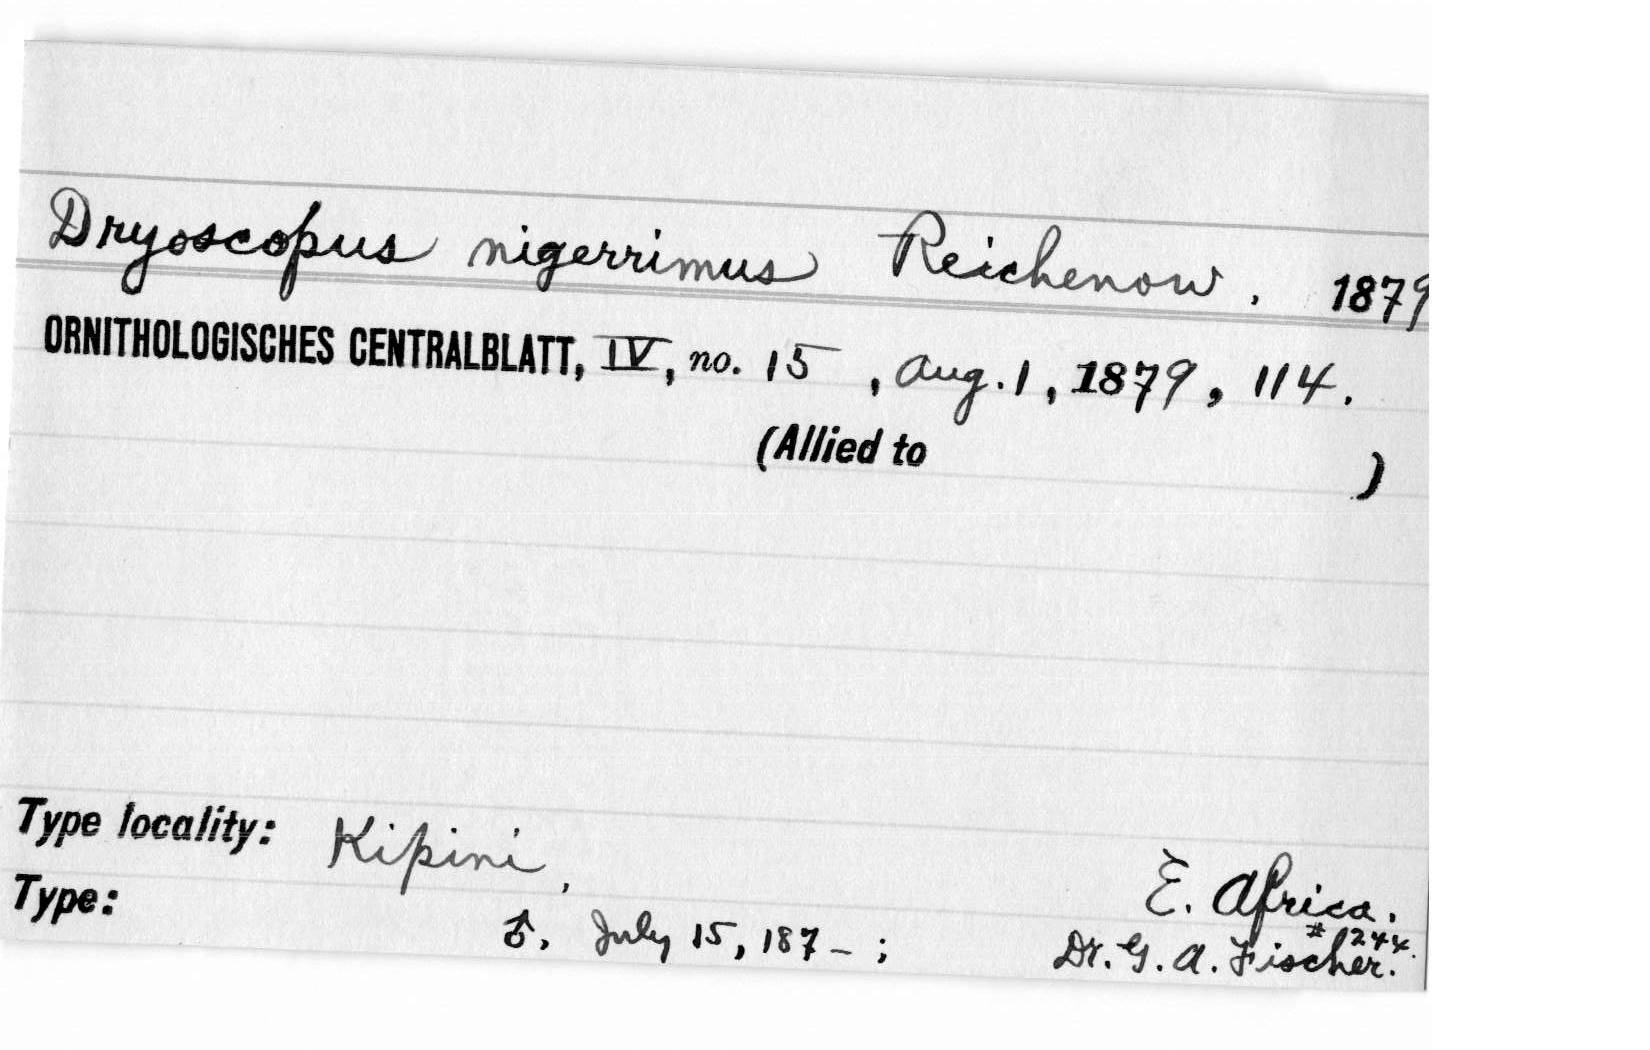 Dryoscopus nigerrimus Reichenow. 1879
ORNITHOLOGISCHES CENTRALBLATT, IV, no. 15, Aug. 1, 1879, 114.
(Allied to )
Type locality: Kipini,
E. Africa.
Type: ♂. July 15, 187-; Dr. G. A. Fischer. #244.